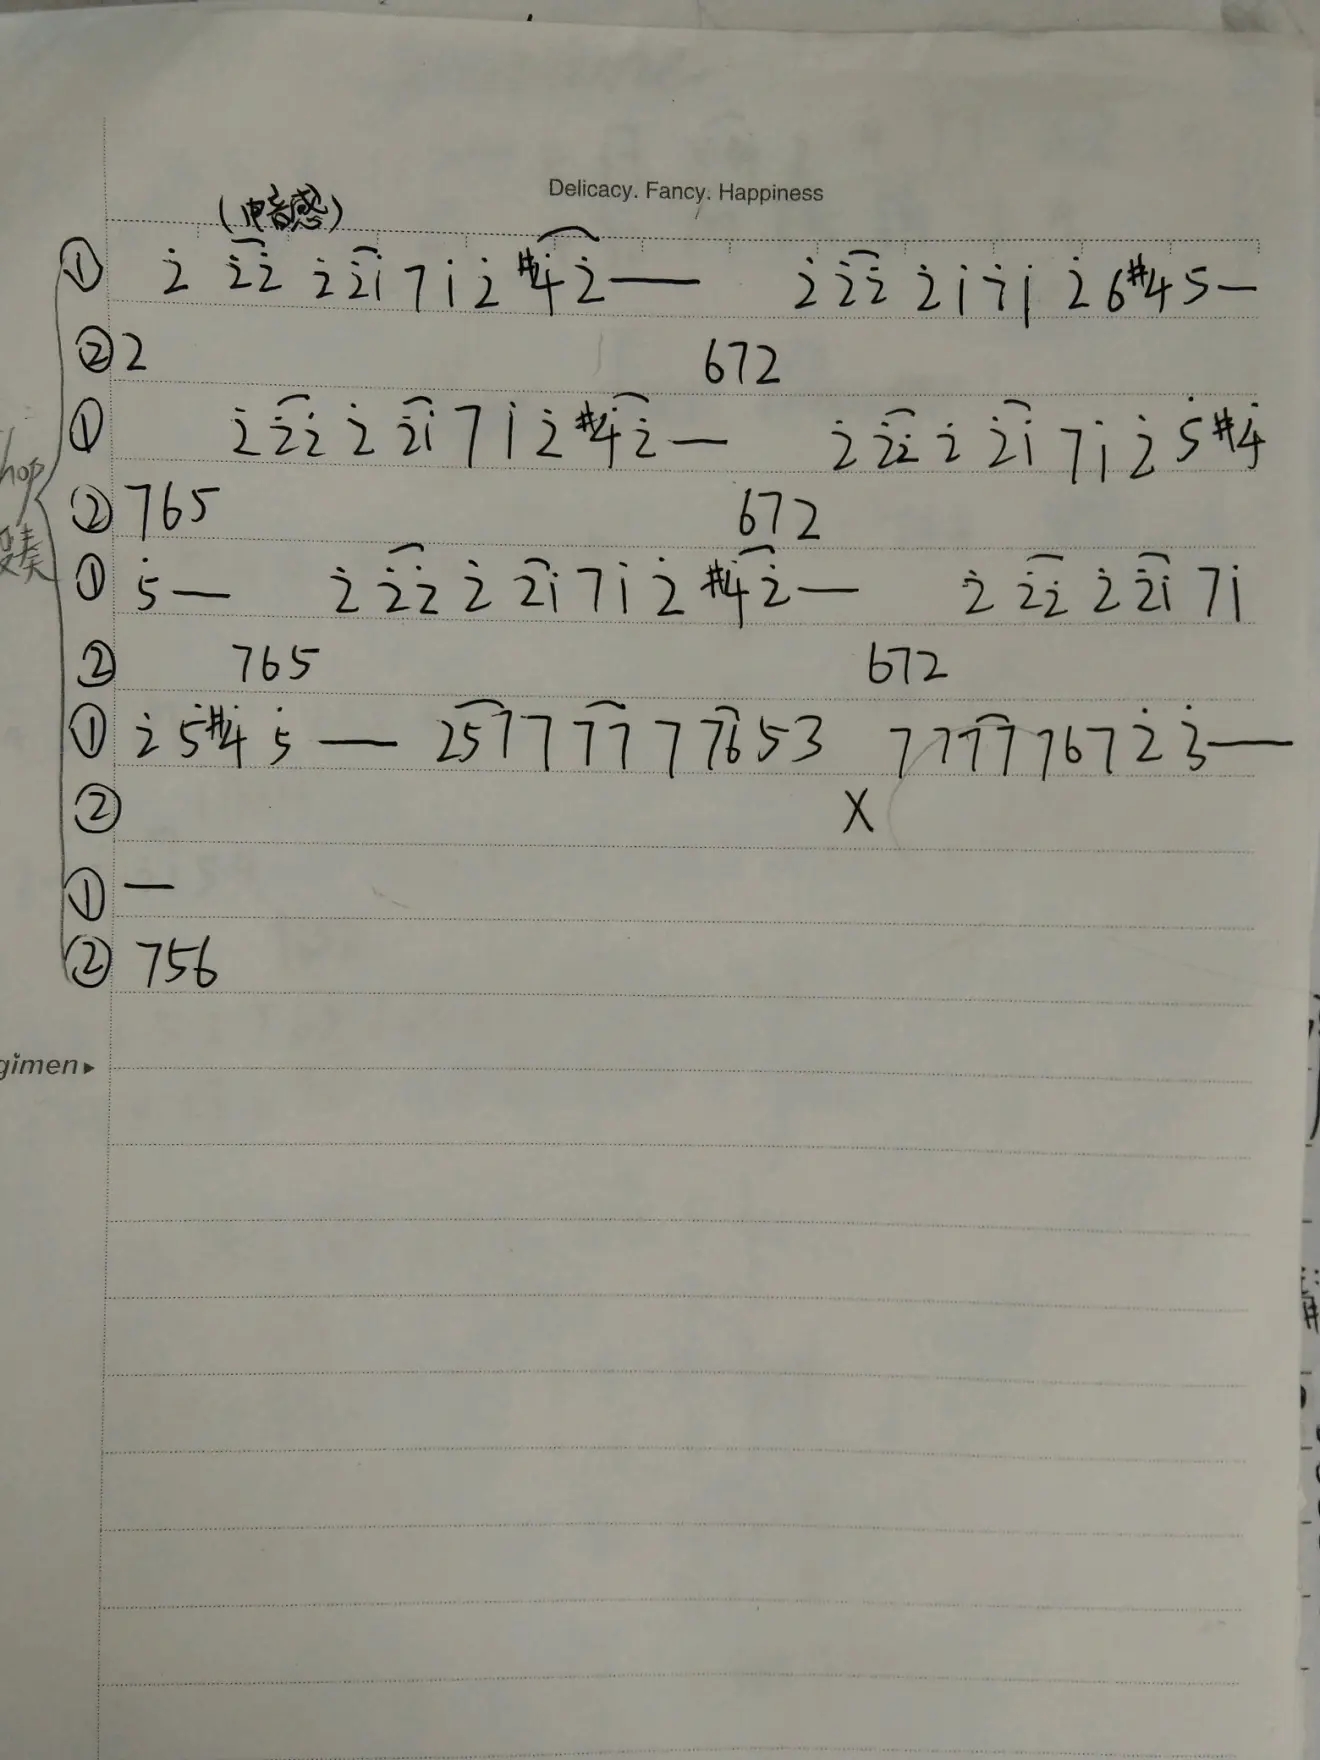 Delicacy. Fancy. Happiness
(中音感)
① 2̇ 2̇2̇ 2̇ 2̇1̇ 7 1̇ 2̇ #4̇ 2̇ — 2̇ 2̇2̇ 2̇ 1̇ 7̇ 1̇ 2̇ 6 #4 5 —
② 2 672
① 2̇ 2̇2̇ 2̇ 2̇1̇ 7 1̇ 2̇ #4̇ 2̇ — 2̇ 2̇2̇ 2̇ 2̇1̇ 7 1̇ 2̇ 5̇ #4̇
② 765 672
① 5̇ — 2̇ 2̇2̇ 2̇ 2̇1̇ 7 1̇ 2̇ #4̇ 2̇ — 2̇ 2̇2̇ 2̇ 2̇1̇ 7 1̇
② 765 672
① 2̇ 5̇ #4̇ 5̇ — 2577 77 77 7653 7777 767 2̇ 3̇ —
② X
① —
② 756
hop
奏
gimen ▸